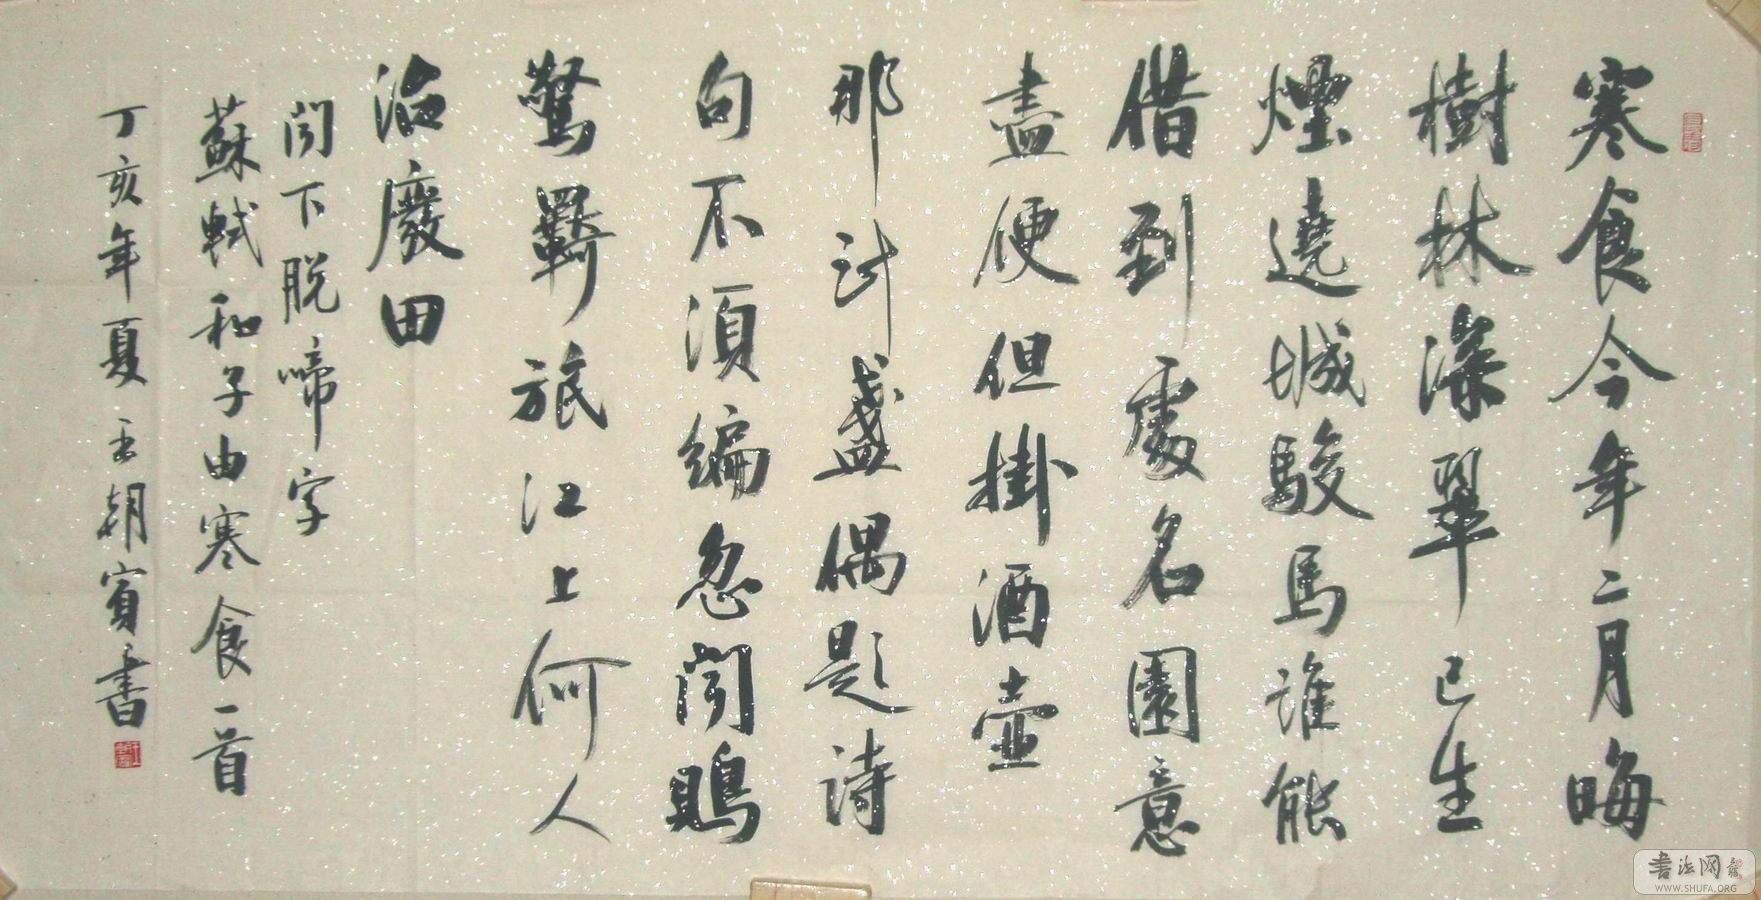 寒食今年二月晦
樹林深翠已生
煙遶城駿馬誰能
借到處名園意
盡便但掛酒壺
那計盞偶題詩
句不須編忽聞鵙
驚羈旅江上何人
治廢田
聞下脫啼字
蘇軾和子由寒食一首
丁亥年夏王朝賓書
書法网
WWW.SHUFA.ORG